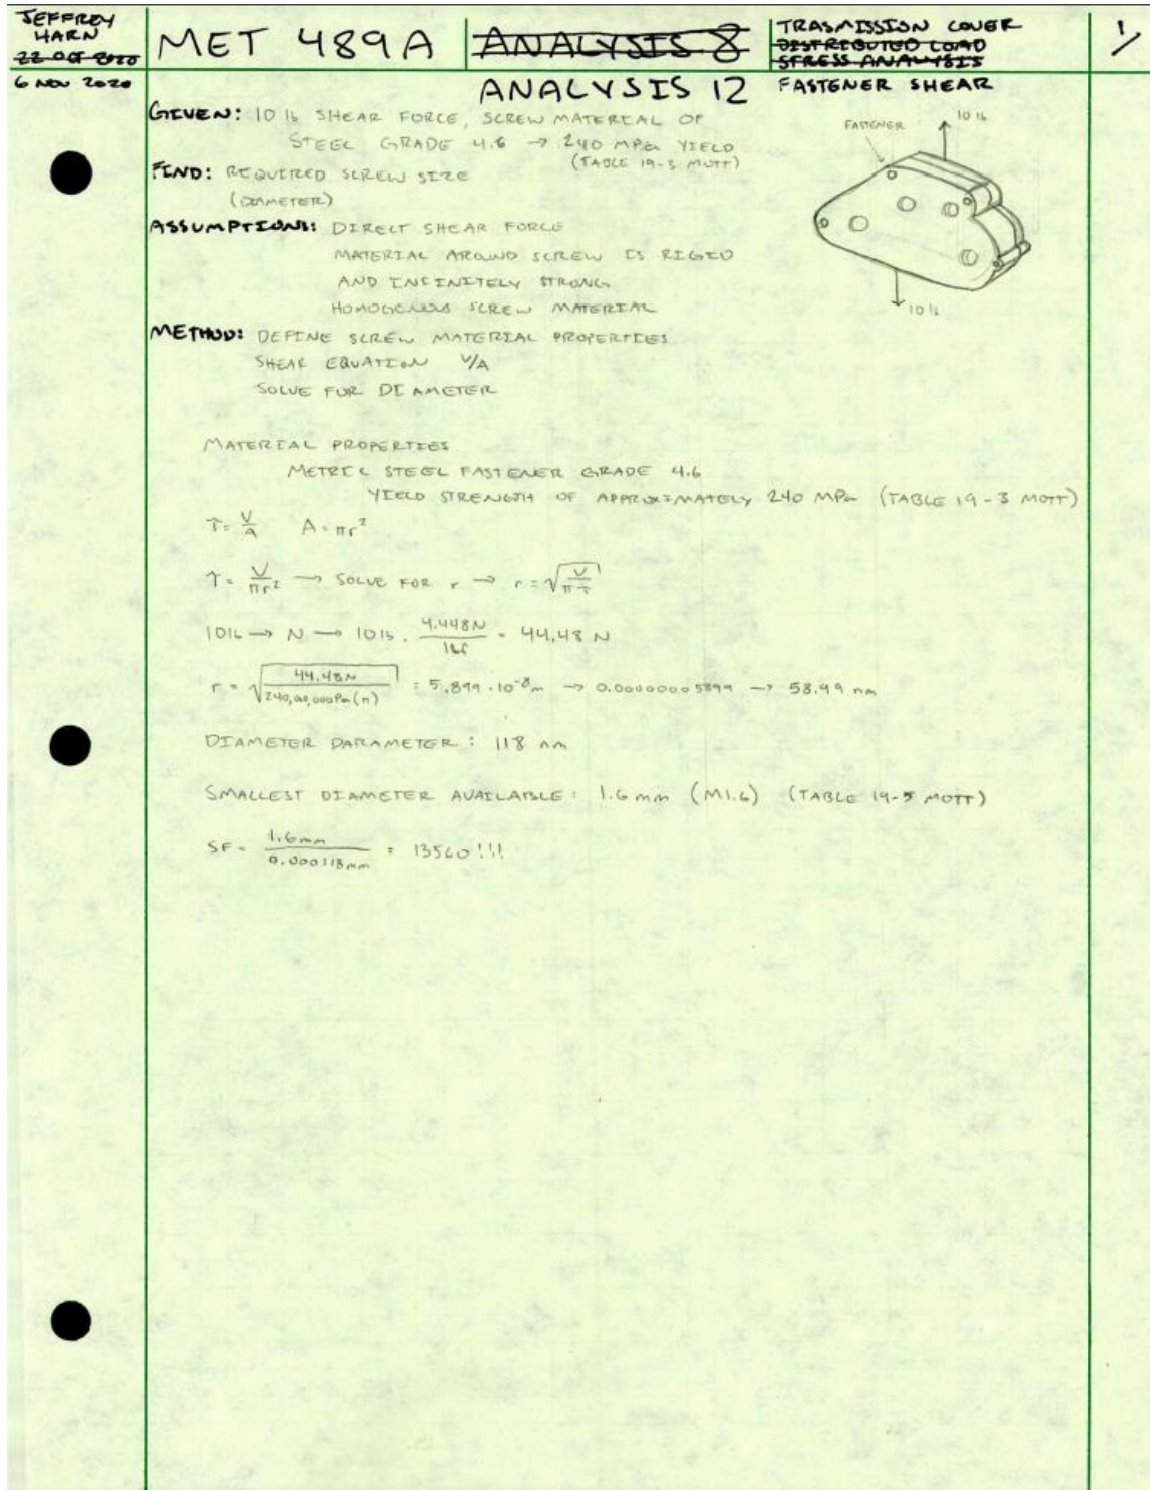 JEFFREY
HARN
22 OCT 2020
6 NOV 2020
MET 489A
ANALYSIS 8
ANALYSIS 12
TRASMISSION COVER
DISTRIBUTED LOAD
STRESS ANALYSIS
FASTENER SHEAR
1/
GIVEN: 10 lb SHEAR FORCE, SCREW MATERIAL OF
STEEL GRADE 4.6 → 240 MPa YIELD
(TABLE 19-3 MOTT)
FIND: REQUIRED SCREW SIZE
(DIAMETER)
ASSUMPTIONS: DIRECT SHEAR FORCE
MATERIAL AROUND SCREW IS RIGID
AND INFINITELY STRONG
HOMOGENOUS SCREW MATERIAL
FASTENER
10 lb
10 lb
METHOD: DEFINE SCREW MATERIAL PROPERTIES
SHEAR EQUATION V/A
SOLVE FOR DIAMETER
MATERIAL PROPERTIES
METRIC STEEL FASTENER GRADE 4.6
YIELD STRENGTH OF APPROXIMATELY 240 MPa (TABLE 19-3 MOTT)
τ = V/A A = πr²
τ = V/πr² → SOLVE FOR r → r = √(V/πτ)
10lb → N → 10lb · 4.448N/lbf = 44.48 N
r = √(44.48N/240,000,000Pa(π)) = 5.899·10⁻⁸m → 0.00000005899 → 58.99 nm
DIAMETER PARAMETER: 118 nm
SMALLEST DIAMETER AVAILABLE: 1.6mm (M1.6) (TABLE 19-5 MOTT)
SF = 1.6mm/0.000118mm = 13560!!!